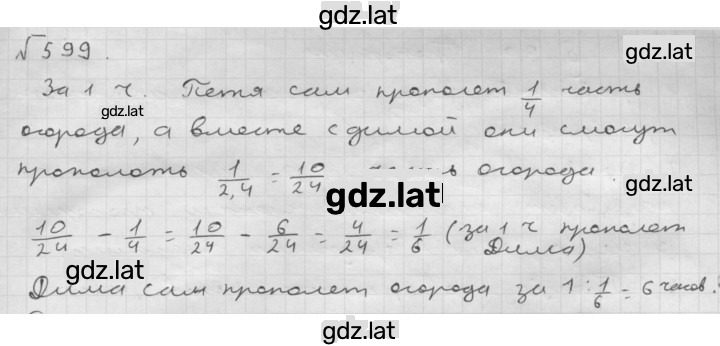 gdz.lat
№599.
gdz.lat
За 1 ч. Петя сам прополет 1/4 часть
gdz.lat
огорода, а вместе с димой они смогут
прополоть 1/2,4 = 10/24 огорода.
gdz.lat
10/24 - 1/4 = 10/24 - 6/24 = 4/24 = 1/6 (за 1 ч прополет Дима)
gdz.lat
Дима сам прополет огорода за 1 : 1/6 = 6 часов.
gdz.lat
gdz.lat